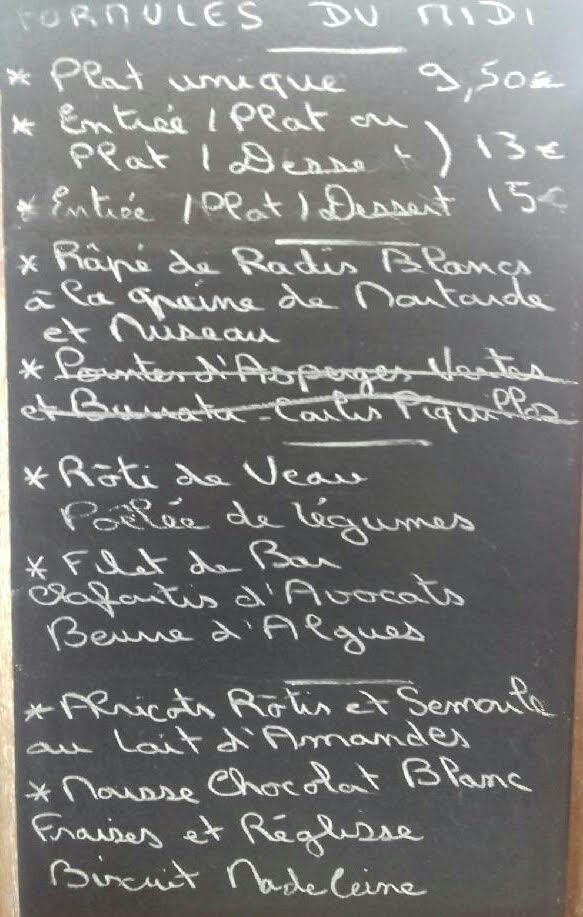 FORMULES DU MIDI
* Plat unique 9,50€
* Entrée / Plat ou
Plat / Dessert ) 13€
* Entrée / Plat / Dessert 15€
* Râpé de Radis Blancs
à la graine de Moutarde
et Museau
* Pointes d'Asperges Vertes
et Burrata - Coulis Piquillos
* Rôti de Veau
Poêlée de légumes
* Filet de Bar
Clafoutis d'Avocats
Beurre d'Algues
* Abricots Rôtis et Semoule
au Lait d'Amandes
* Mousse Chocolat Blanc
Fraises et Réglisse
Biscuit Madeleine